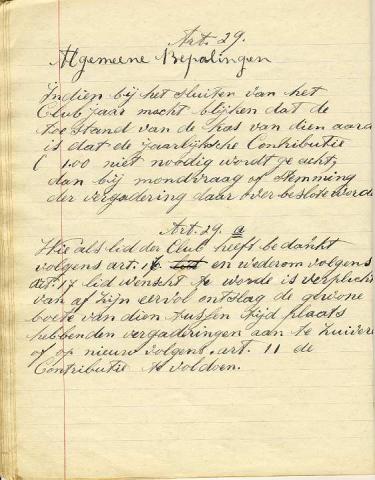 Art. 29.
Algemeene Bepalingen
Indien bij het sluiten van het
Club jaar macht blijken dat de
toestand van de kas van dien aard
is dat de jaarlijksche Contributie
f 1.00 niet noodig wordt geacht,
dan bij mondvraag of stemming
der vergadering daar over beslote worde
Art. 29. a
Hie als lid der Club heeft bedankt
volgens art. 16 en wederom volgens
art. 17 lid wenscht te worde is verplicht
van af zijn eervol ontslag de gewone
boete van dien tussen tijd plaats
hebbenden vergaderingen aan te zuivere
of op nieuw volgens art. 11 de
Contributie te voldoen.